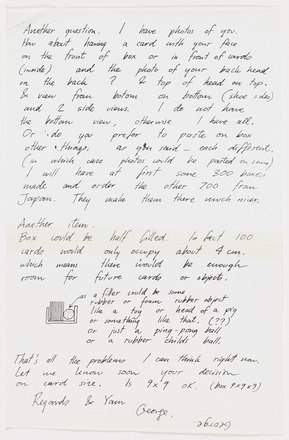 Another question. I have photos of you.
How about having a card with your face
on the front of box or in front of cards
(inside) and the photo of your back head
on the back ? & top of head on top.
& view from bottom on bottom (shoe soles)
and 2 side views. I do not have
the bottom view, otherwise I have all.
Or do you prefer to paste on box
other things, as you said – each different.
(in which case photos could be pasted on some)
I will have at first some 300 boxes
made and order the other 700 from
Japan. They make them there much nicer.
Another item.
Box could be half filled. In fact 100
cards would only occupy about 4 cm.
which means there would be enough
room for future cards or objects.
as a filler could be some
rubber or foam rubber object
like a toy or head of a pig
or something like that. (??)
or just a ping-pong ball
or a rubber childs ball.
That's all the problems I can think right now.
Let me know soon your decision
on card size. Is 9x9 OK. (box 9x9x9)
Regards & Yam
George.
George